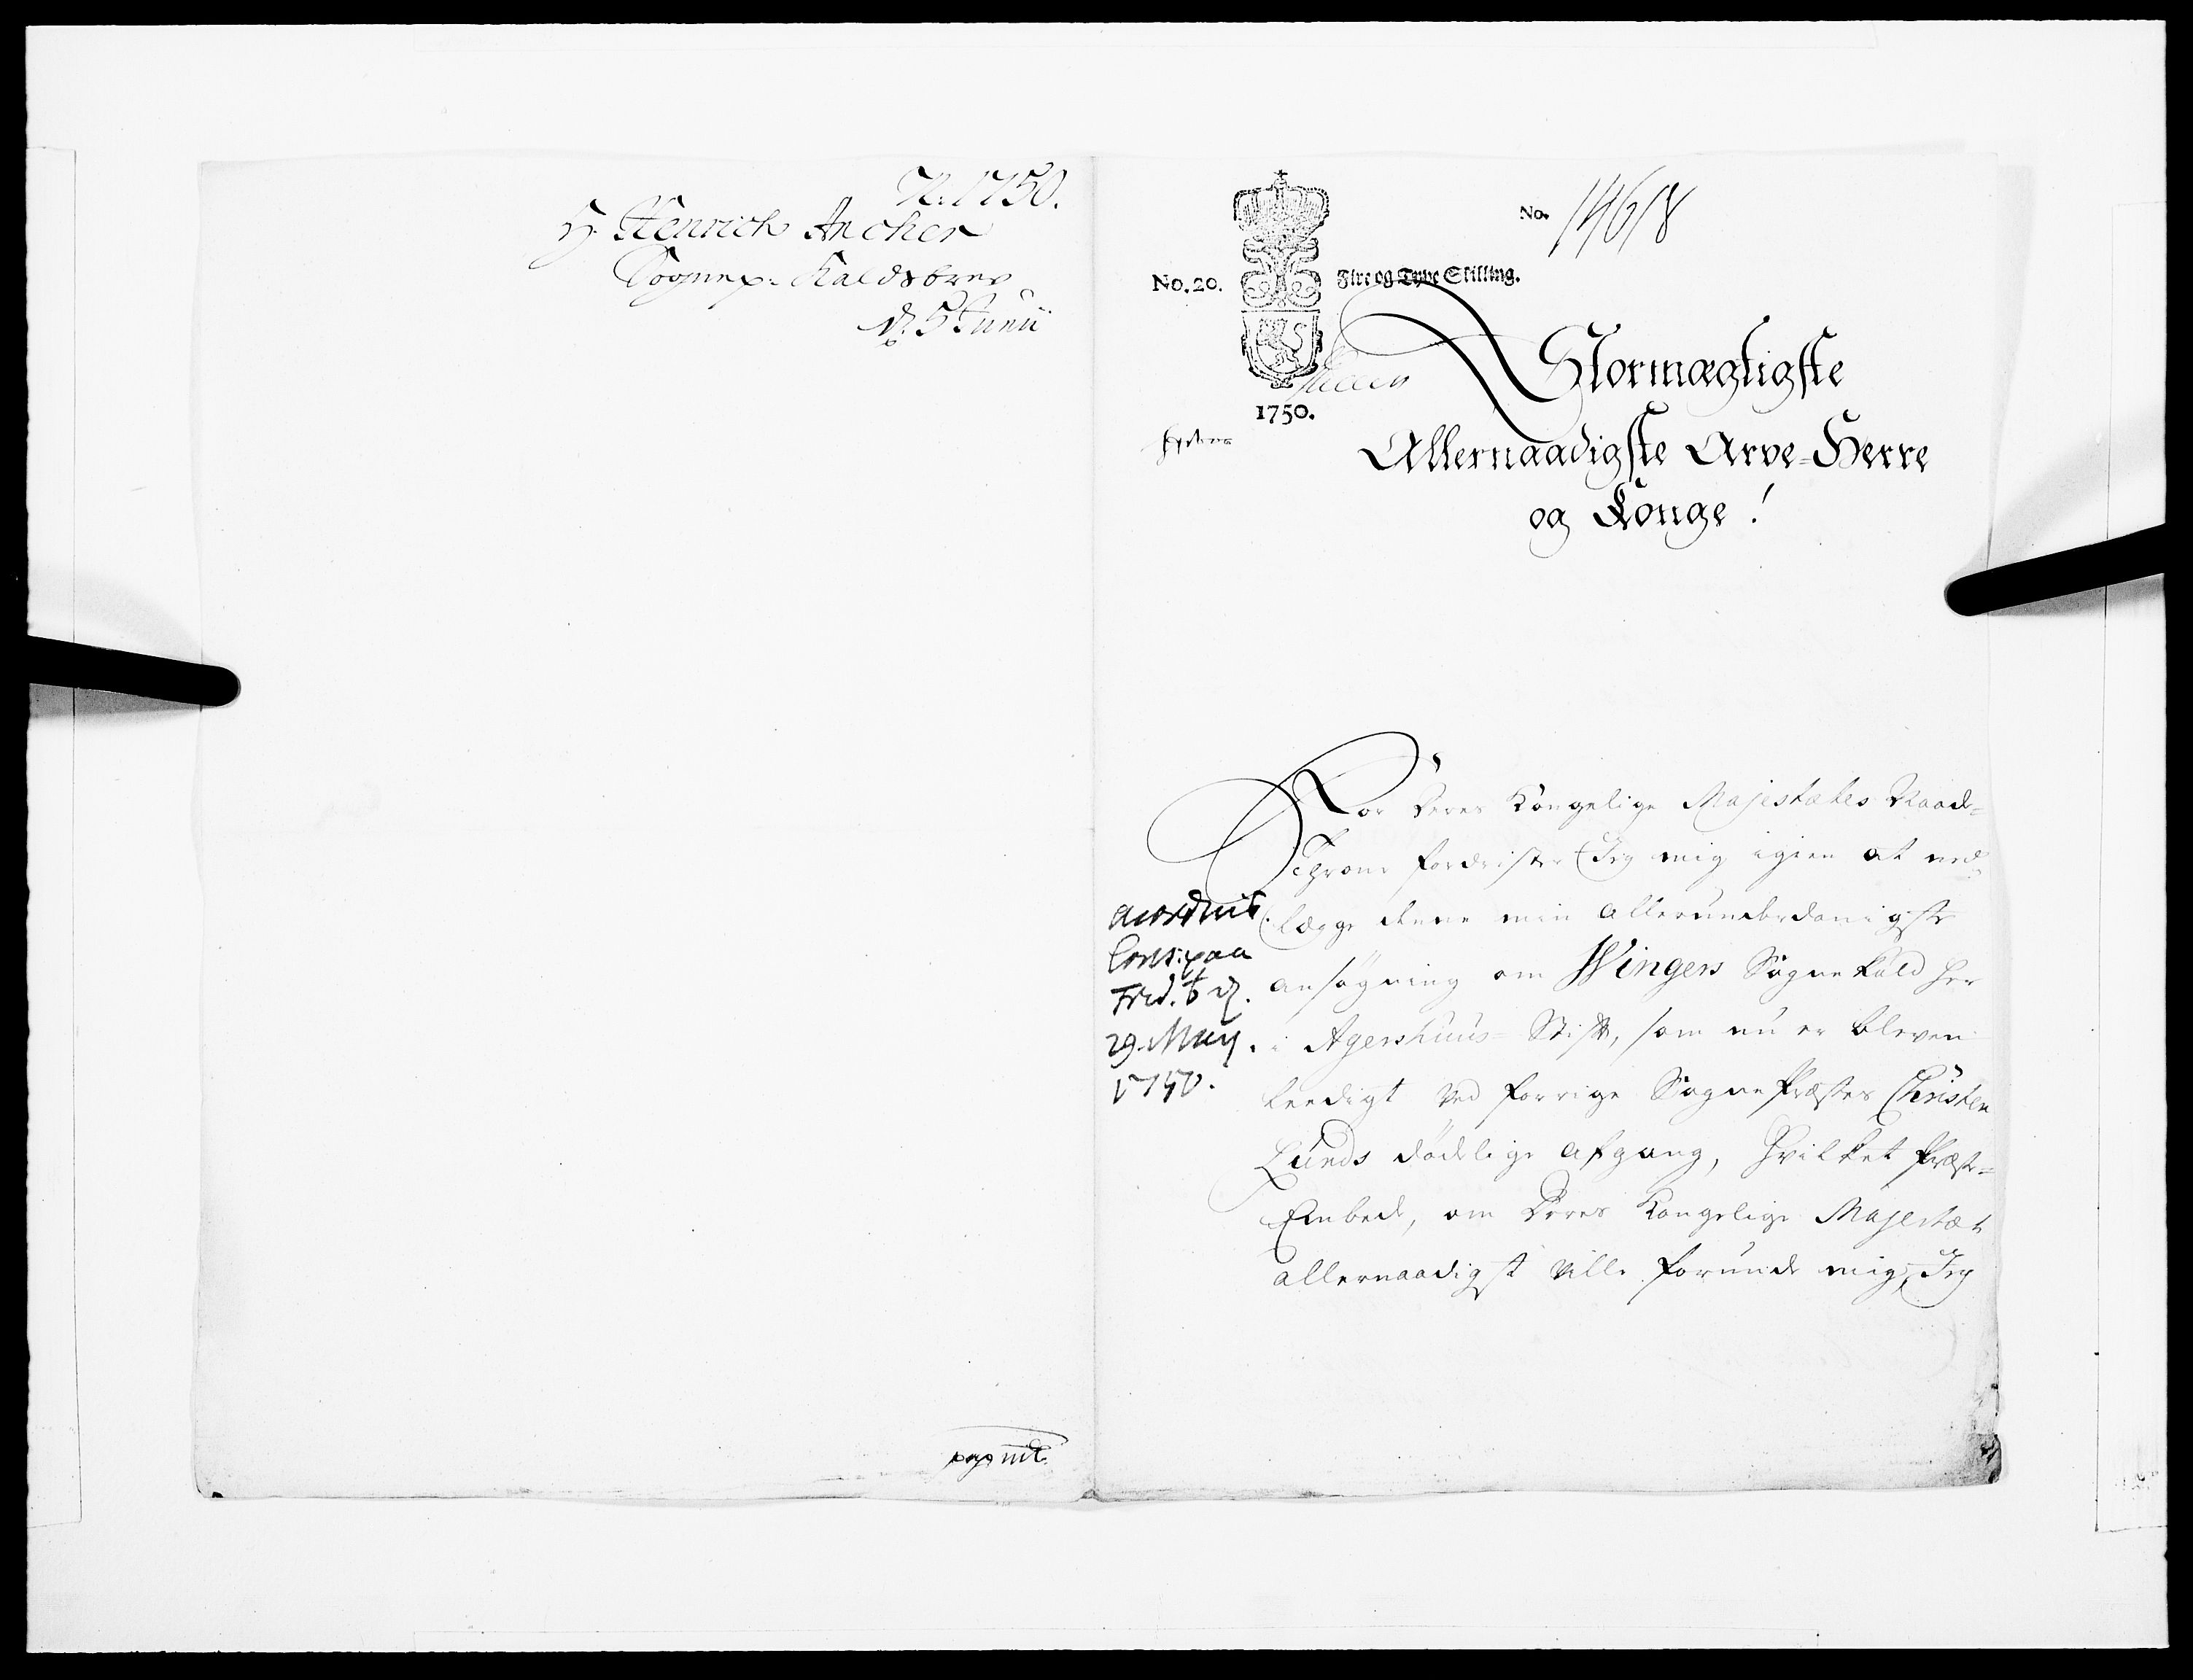 N. 1750.
H. Henrich Ancher
Sognep: Kaldsbrev
d. 5 Junii
No. 14618
No. 20.
Fire og Tyve Skilling.
1750.
Stormægtigste
Allernaadigste Arve-Herre
og Konge!
For Deres Kongelige Majestætes Naade-
Throne fordrister Jeg mig igien at ned-
lægge denne min allerunderdanigste
ansøgning om Wingers Sognekald her
i Agershuus-Stift, som nu er bleven
leedigt ved forrige SognePræstes Christen
Lunds dødelige afgang, hvilket Præste-
Embede, om Deres Kongelige Majestæt
allernaadigst ville forunde mig, Jeg
29. May.
1750.